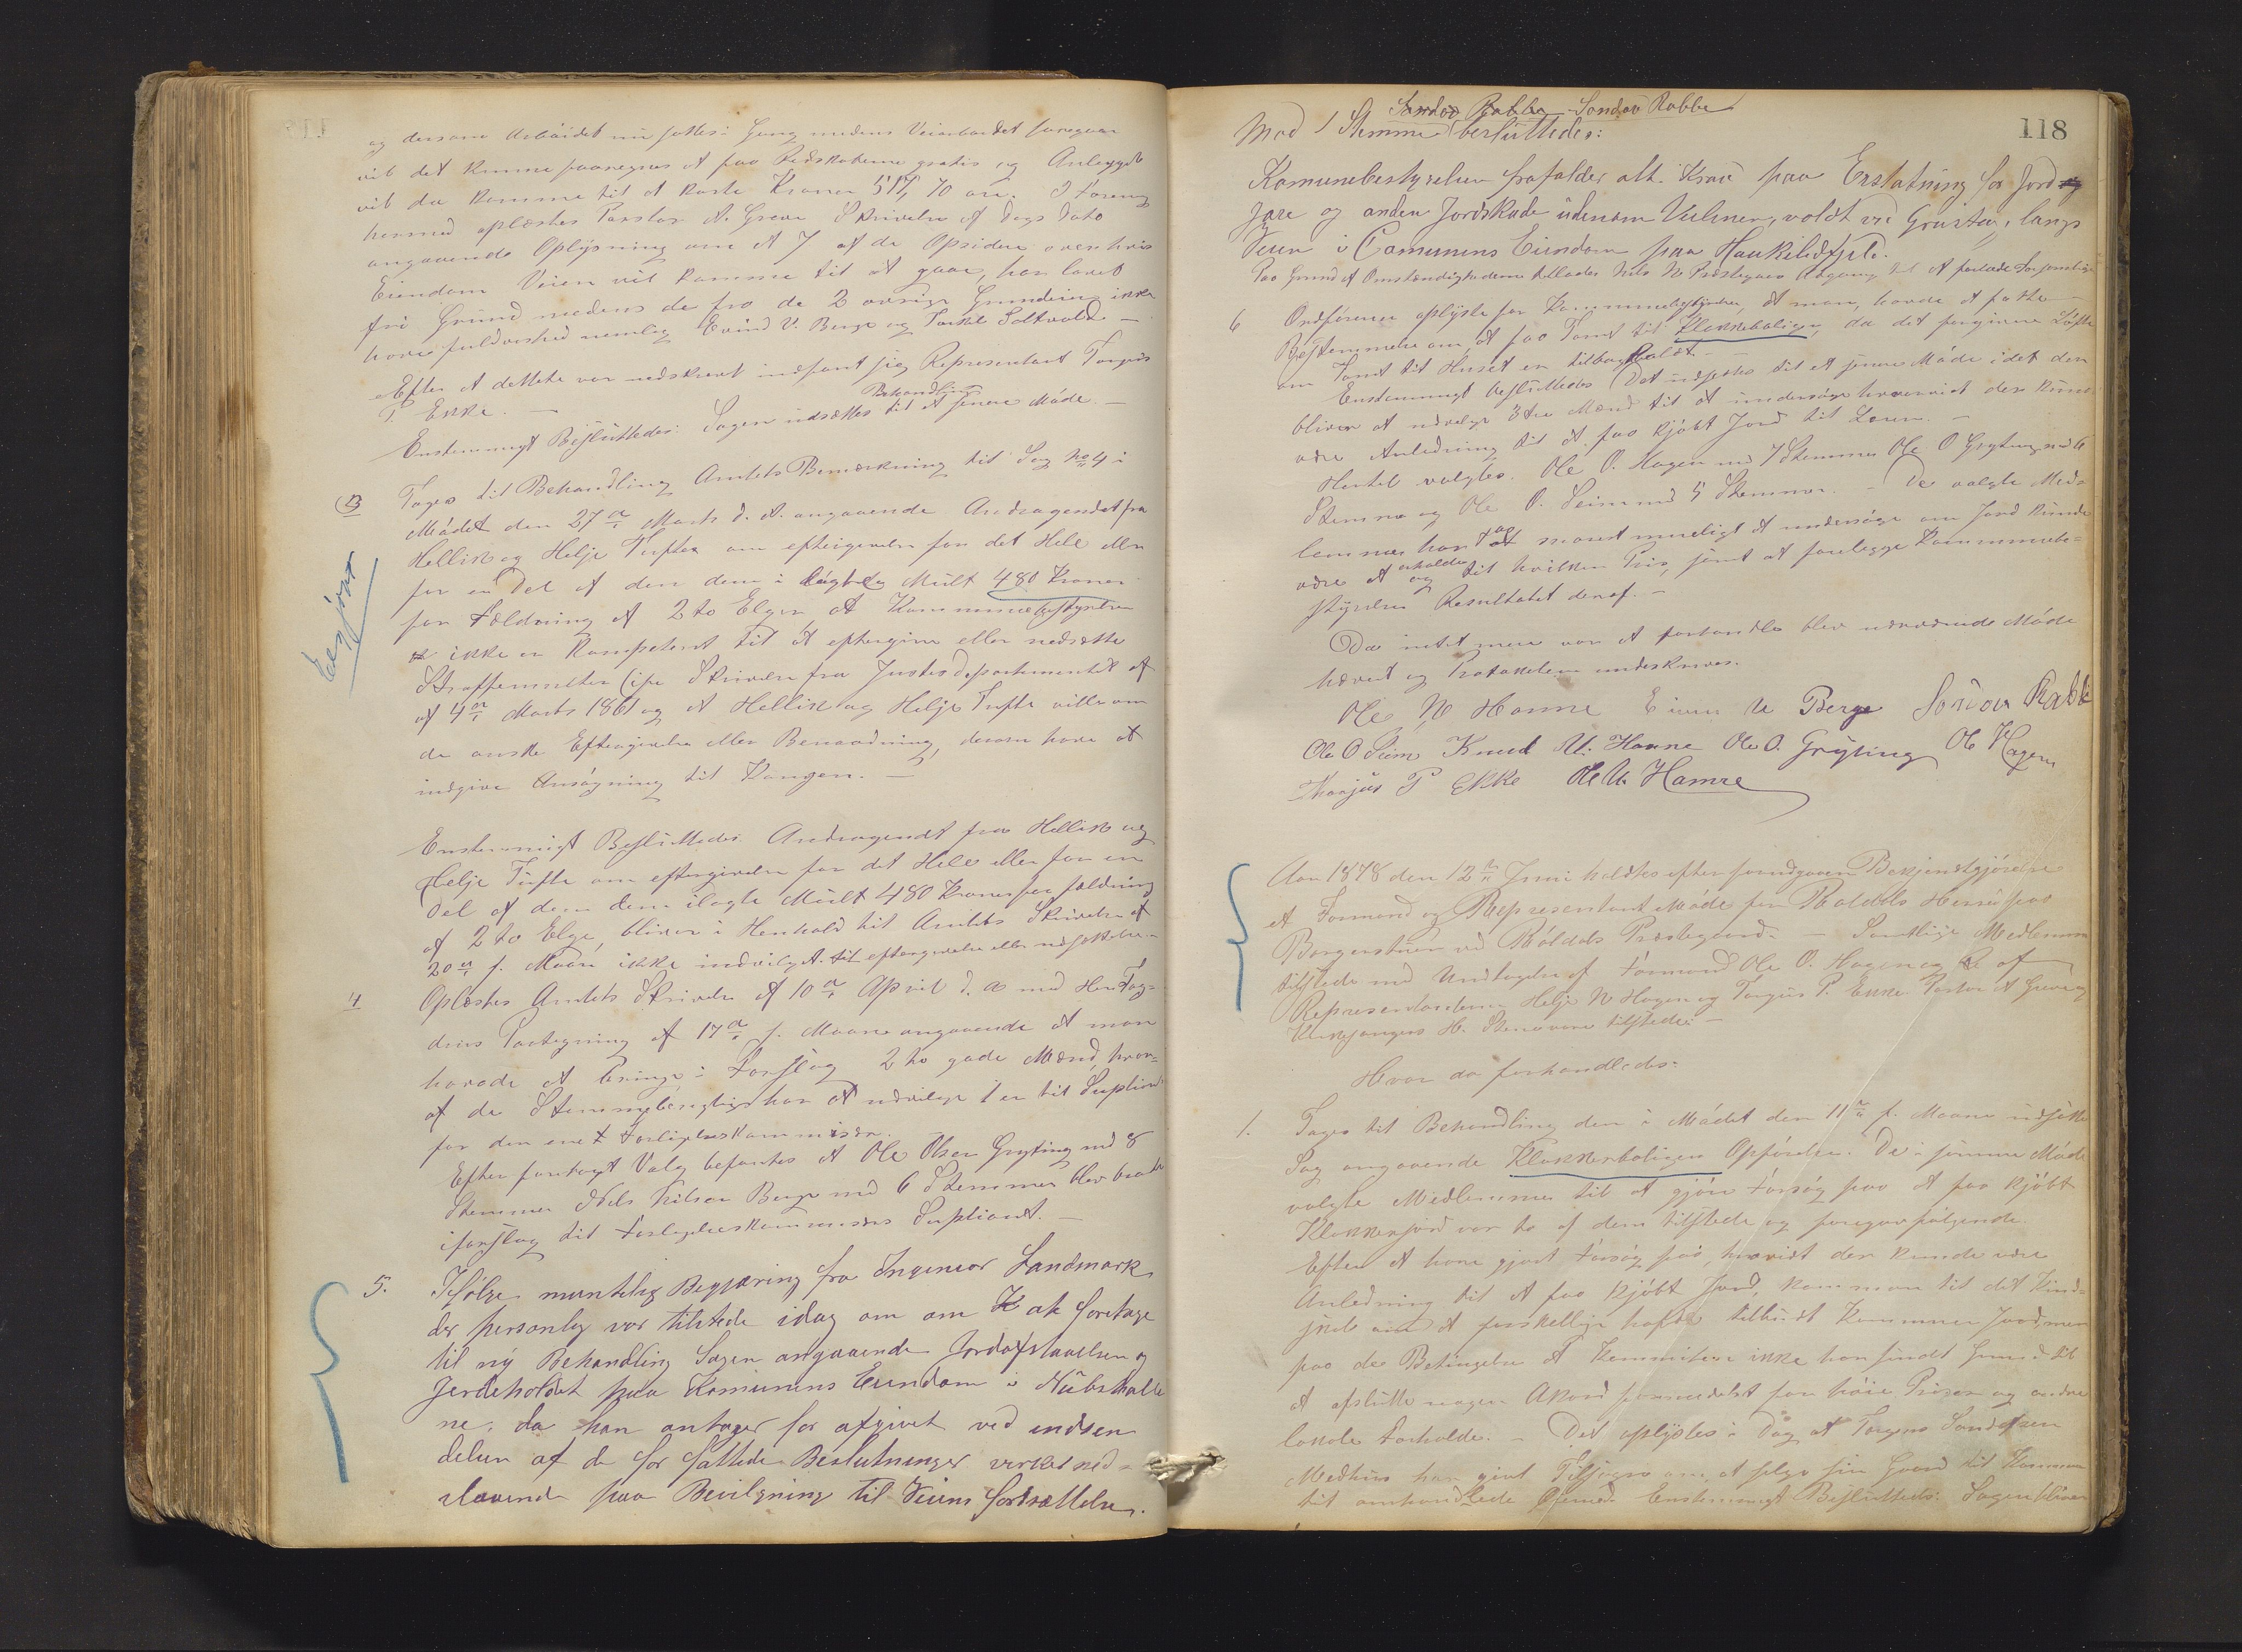 og dersom Arbeidet nu sættes i Gang medens Veiarbeidet foregaar
vil det kunne paaregnes at faa Redskaberne gratis og Anlægget
vil da komme til at koste Kroner 517, 70 øre.
hermed oplæstes Pastor A. Greve Skrivelse af Dags Dato
angaaende Oplysning om at 7 af de Opsidere over hvis
Eiendom Veien vil komme til at gaae, har lovet
fri Grund medens de fra de 2 øvrige Grundeiere ikke
haves fuldvished nemlig Eivind V. Berge og Torkel Saltvold —
Efter at dettete var nedskrevet indfant sig Representant Torgius
P. Ekke. —
Enstemmigt Besluttedes: Sagen udsættes Behandling til et senere Møde. —
3 Toges til Behandling Amtets Bemærkning til Sag No 4 i
Mødet den 27de Marts d. A. angaaende Andragendet fra
Hellik og Helje Tufte om eftergivelse for det Hele eller
for en Del af den dem i lagte Mult 480 Kroner
for Fældning af 2to Elger, at Kommunebestyrelsen
ikke er Kompetent til at eftergive eller nedsætte
Straffemulter (jfr Skrivelse fra Justisdepartementet af
af 4de Marts 1861 og at Hellik og Helje Tufte ville om
de ønske Eftergivelse eller Benaadning, derom have at
indgive Ansøgning til Kongen. —
Exsjonr
Enstemmigt Besluttedes Andragendet fra Hellik og
Helje Tufte om eftergivelse for det Hele eller for en
Del af den dem ilagte Mult 480 Kroner for fældning
af 2to Elge, bliver i Henhold til Amtets Skrivelse af
20de f. Maan ikke indvilget til eftergivelse eller nedsættelse. —
4 Oplæstes Amtets Skrivelse af 10de April d. A. med
Paategning af 17de f. Maane angaaende at man
havde at bringe i Forslag 2to gode Mænd, hvor=
af de Stemmeberegtige har at udvælge 1 en til Suppliant
for den ene Forligelseskommissær.
Efter foretagt Valg befantes at Ole Olsen Gryting med 8
Stemmer Nils Nilsen Berge med 6 Stemmer blev bragt
iforslag til Forligelseskommissærs Supliant. —
5. Ifølge muntelig Begjæring fra Ingeniør Landmark
der personlig var tilstede idag om om at foretage
til ny Behandling Sagen angaaende Jordafstaaelsen og
Jerdeholdet paa Komunens Eiendom i Nubshalle
ne, da han antager for afgivet ved indsen
delsen af de før fattede Beslutninger virket ned=
slaaende paa Bevilgning til Veiens fortsættelse.
118
Sondov Rabbe Sondov Rabbe
Mod 1 Stemme besluttedes:
Komunebestyrelsen frafalder alt Krav paa Erstatning for Jord og
Jære og anden Jordskade udenom Veilinien, voldt ved Grustag, langs
Veien i Comunens Eiendom paa Haukelidfjeld.
Paa Grund af Omstændighederne tillades Nils N Prestegaard Adgang til at forlade Forsamling
6 Ordføreren oplyste for Kommunebestyrelsen, at man, havde at fatte
Bestemmelse om at faa Tomt til Klokkebolige, da det forgivne Løfte
om Tomt til Huset er tilbagekaldt. —
Enstemmigt besluttedes Det udsættes til et senere Møde idet der
bliver at udvælge 3de Mænd til at undersøge hvorvidt der kunde
være Anledning til at faa kjøbt Jord til Løven. —
Hertil valgtes. Ole O. Hagen med 7 Stemmer Ole O Gryting med 6
Stemmer og Ole O. Seim med 5 Stemmer. — De valgte Med=
lemmer har at snarest mueligt at undersøge om Jord kunde
være at erholde og til hvilken Pris, samt at forelegge Kommunebe=
styrelsen Resultatet deraf. —
Da intet mere var at forhandle blev nærværende Møde
hævet og Protokollen underskreves.
Ole N Hamre Eivin V Berge Sondov Rabbe
Ole O Seim Knud U. Hamre Ole O. Gryting Ole Hagen
Thorgius P Ekke Ole U. Hamre
Aar 1878 den 12te Juni holdtes efter forudgaaen Bekjendtgjørelse
et Formand og Representant Møde for Røldals Herred paa
Borgerstuen ved Røldals Præstegaard. — Samtlige Medlemmer
tilstede med Undtagelse af Formand Ole O. Hagen og af
Representanterne Helje N Hagen og Torgius P. Ekke Pastor A Greve og
Kirkesanger H. vare tilstede. —
Hvor da forhandledes:
1. Toges til Behandling den i Mødet den 11te f. Maane udsatte
Sag angaaende Klokkerboligens Opførelse. De i samme Møde
valgte Medlemmer til at gjøre Forsøg paa at faa kjøbt
Klokkerjord var to af dem tilstede og foregav følgende.
Efter at have gjort Forsøg paa, hvorvidt der kunde være
Anledning til at faa kjøbt Jord, kom man til det Kind=
skab om at forskellige havde tilbudt Kommunen Jord, men
paa de Betingelser at Kommiteen ikke har fundet Grund til
at afslutte nogen Akord formedelst for høie Priser og andre
lokale Forholde. — Det oplystes i Dag at Torgeus Sondresen
Medhus har givet Tilsagn om at selge sin Gaard til Kommunen
til omhandlede Øiemed. Enstemmigt Besluttedes: Sagen bliver